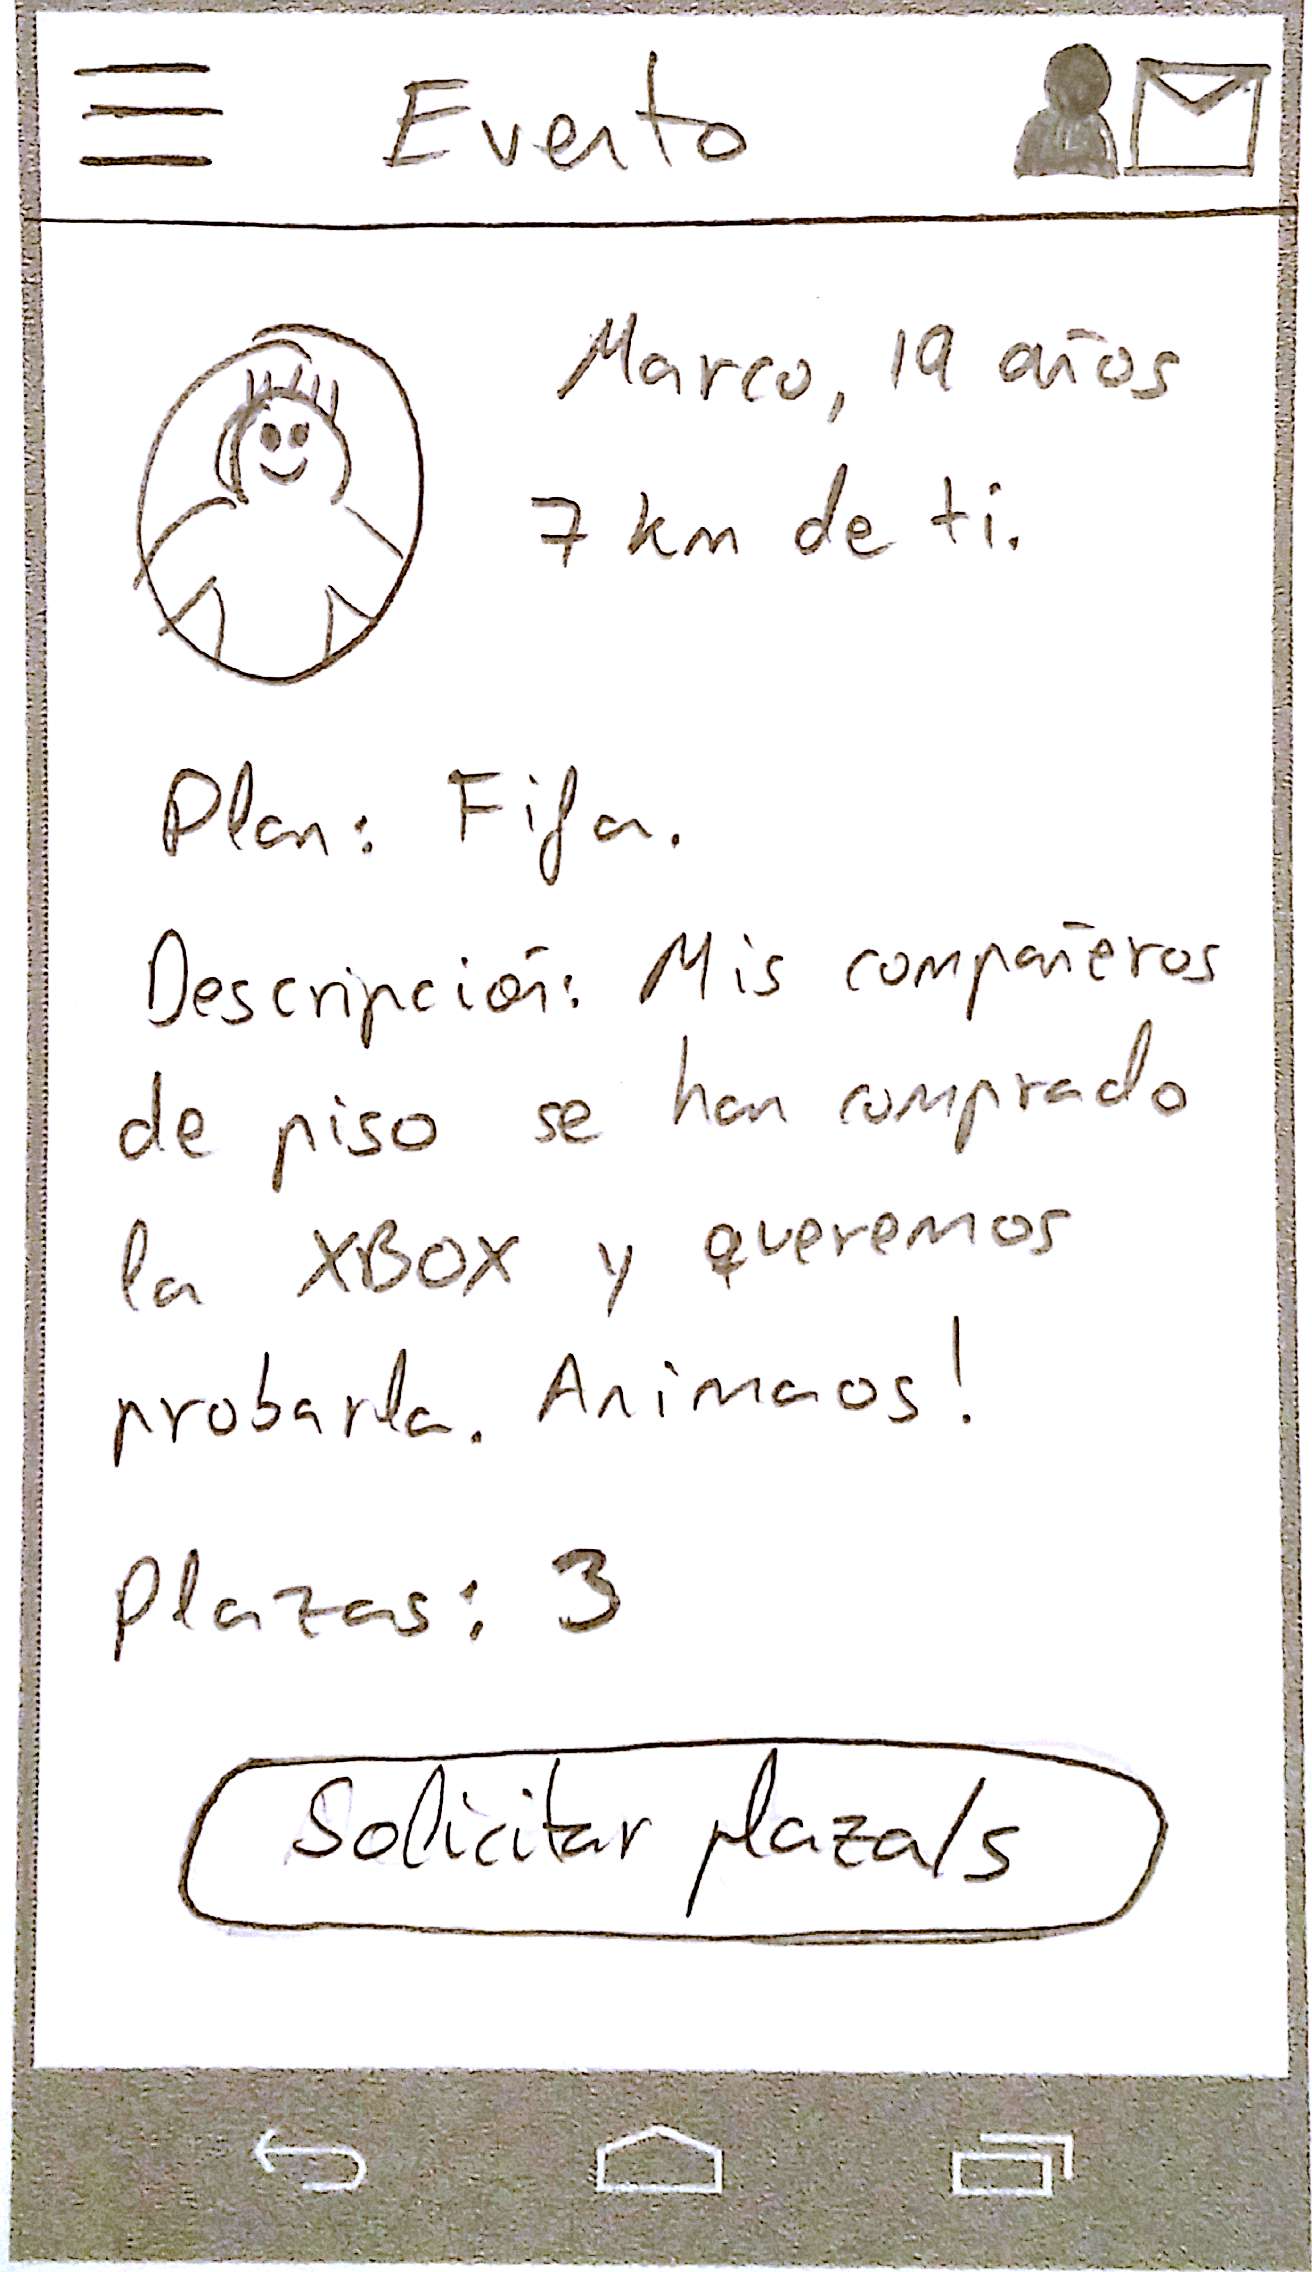 Evento
Marco, 19 años
7 km de ti.
Plan: Fifa.
Descripción: Mis compañeros
de piso se han comprado
la XBOX y queremos
probarla. Animaos!
Plazas: 3
Solicitar plaza/s